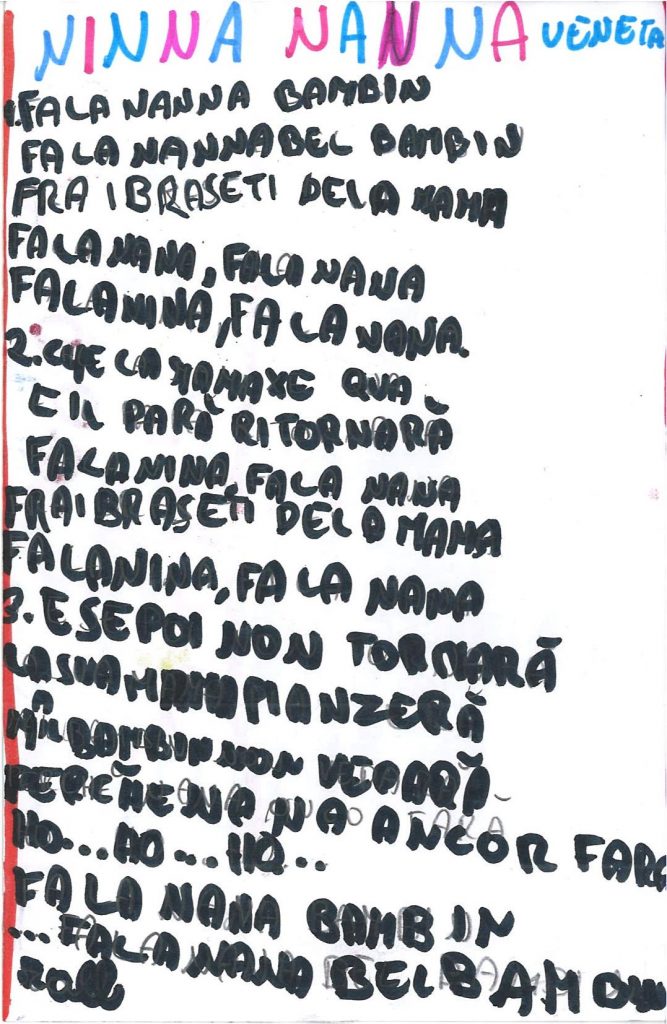 NINNA NANNA VENETA
1. FA LA NANNA BAMBIN
FA LA NANNA BEL BAMBIN
FRA I BRASETI DELA MAMA
FA LA NANA, FALA NANA
FALA NINA, FA LA NANA.
2. CHE LA MAMA XE QUA
E IL PARÀ RITORNARÀ
FALA NINA, FALA NANA
FRA I BRASETI DELA MAMA
FALA NINA, FA LA NANA
3. E SE POI NON TORNARÀ
LA SUA MAMA PIANZERÀ
IL BAMBIN NON VEDARÀ
PERCHE NANA ANCOR FARÀ
HO... HO... HO...
FA LA NANA BAMBIN
... FA LA NANA BEL BAMBIN